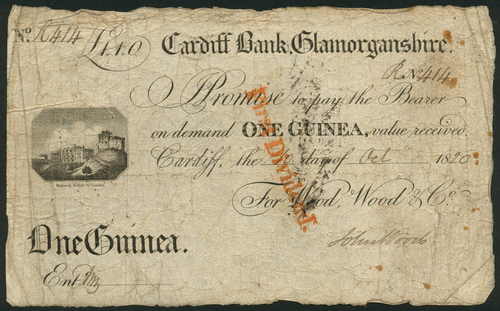 No. K414 £1.1.0 Cardiff Bank, Glamorganshire.
K No. 414
I Promise to pay the Bearer
on demand ONE GUINEA, value received.
Cardiff, the day of Oct 1820
For Wood, Wood & Co.
John Wood
One Guinea.
Entd.
Dividend.